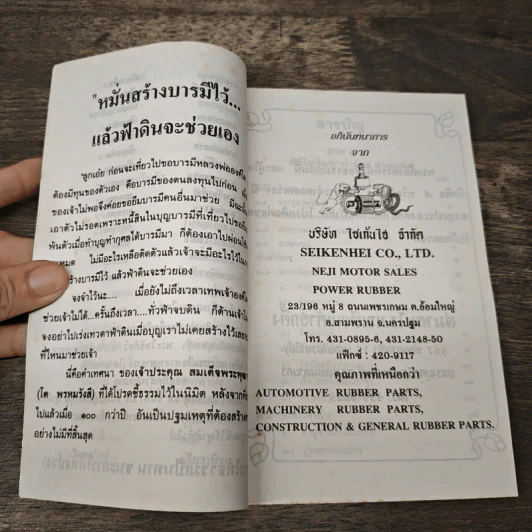 "หมั่นสร้างบารมีไว้...
แล้วฟ้าดินจะช่วยเอง
"ลูกเอ๋ย ก่อนจะเที่ยวไปขอบารมีหลวงพ่อองค์ใด
ต้องมีทุนของตัวเอง คือบารมีของตนลงทุนไปก่อน เมื่อ
ของเจ้าไม่พอจึงค่อยขอยืมบารมีคนอื่นมาช่วย มิฉะนั้น
เอาตัวไม่รอดเพราะหนี้สินในบุญบารมีที่เที่ยวไปขอยืม
พ้นตัวเมื่อทำบุญทำกุศลได้บารมีมา ก็ต้องเอาไปผ่อนใช้
หมด ไม่มีอะไรเหลือติดตัวแล้วเจ้าจะมีอะไรไว้ใน
สร้างบารมีไว้ แล้วฟ้าดินจะช่วยเอง
จงจำไว้นะ.... เมื่อยังไม่ถึงเวลาเทพเจ้าองค์ใด
ช่วยเจ้าไม่ได้...ครั้นถึงเวลา...ทั่วฟ้าจบดิน ก็ต้านเจ้า
จงอย่าไปเร่งเทวดาฟ้าดินเมื่อบุญเราไม่เคยสร้างไว้เลย
ที่ไหนมาช่วยเจ้า
นี่คือคำเทศนา ของเจ้าประคุณ สมเด็จพระพุฒา
(โต พรหมรังสี) ที่ได้โปรดชี้ธรรมไว้ในนิมิต หลังจาก
ไปแล้วเมื่อ ๑๐๐ กว่าปี อันเป็นปฐมเหตุที่ต้องสร้าง
อย่างไม่มีที่สิ้นสุด
อภินันทนาการ
จาก
บริษัท ไซเก้นไฮ จำกัด
SEIKENHEI CO., LTD.
NEJI MOTOR SALES
POWER RUBBER
23/196 หมู่ 8 ถนนเพชรเกษม ต.อ้อมใหญ่
อ.สามพราน จ.นครปฐม
โทร. 431-0895-6, 431-2148-50
แฟ็กซ์ : 420-9117
คุณภาพที่เหนือกว่า
AUTOMOTIVE RUBBER PARTS,
MACHINERY RUBBER PARTS,
CONSTRUCTION & GENERAL RUBBER PARTS.